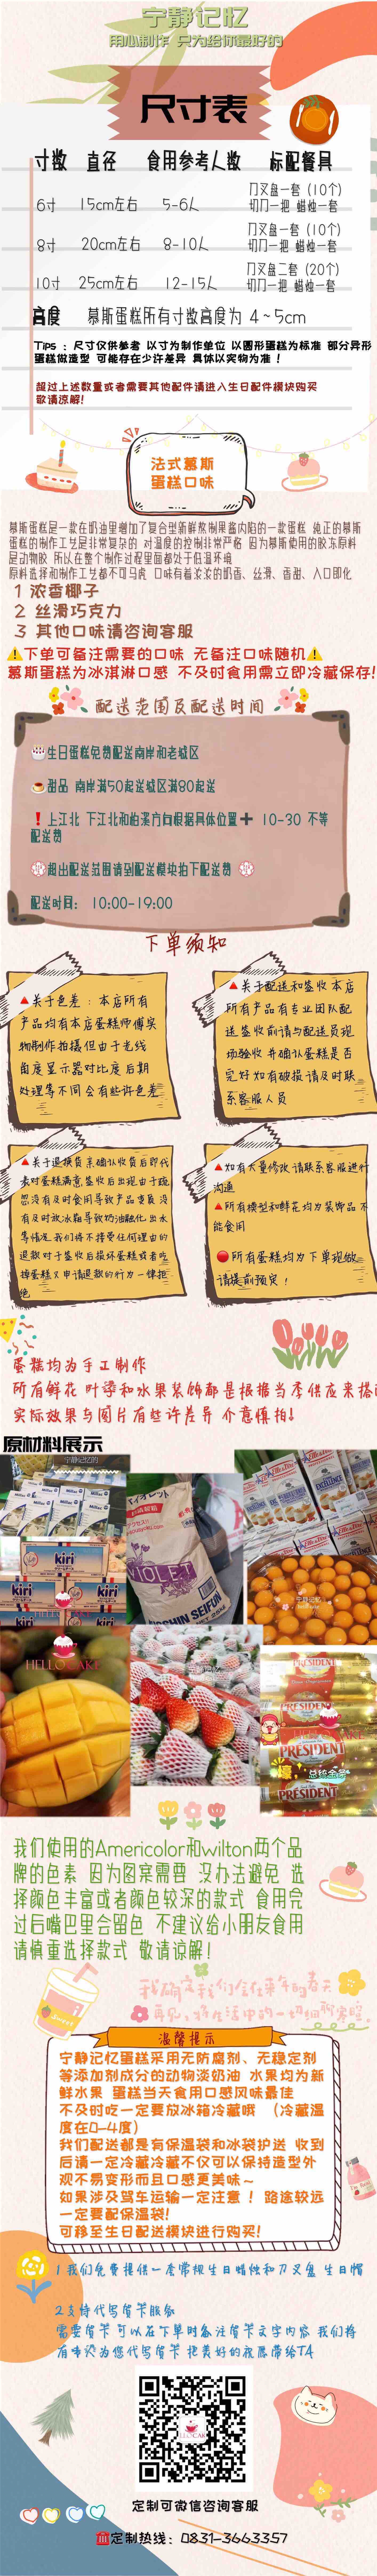 宁静记忆
用心制作 只为给你最好的
尺寸表
寸数 直径 食用参考人数 标配餐具
6寸 15cm左右 5-6人 刀叉盘一套（10个）
切刀一把 蜡烛一套
8寸 20cm左右 8-10人 刀叉盘一套（10个）
切刀一把 蜡烛一套
10寸 25cm左右 12-15人 刀叉盘二套（20个）
切刀一把 蜡烛一套
高度 慕斯蛋糕所有寸数高度为 4~5cm
Tips：尺寸仅供参考 以寸为制作单位 以圆形蛋糕为标准 部分异形
蛋糕做造型 可能存在少许差异 具体以实物为准！
超过上述数量或者需要其他配件请进入生日配件模块购买
敬请谅解！
法式慕斯
蛋糕口味
慕斯蛋糕是一款在奶油里增加了复合型新鲜熬制果酱内陷的一款蛋糕 纯正的慕斯
蛋糕的制作工艺是非常复杂的 对温度的控制非常严格 因为慕斯使用的胶冻原料
是动物胶 所以在整个制作过程里面都处于低温环境
原料选择和制作工艺都不可马虎 口味有着浓浓的奶香、丝滑、香甜、入口即化
1 浓香椰子
2 丝滑巧克力
3 其他口味请咨询客服
下单可备注需要的口味 无备注口味随机
慕斯蛋糕为冰淇淋口感 不及时食用需立即冷藏保存！
配送范围及配送时间
生日蛋糕免费配送南岸和老城区
甜品 南岸满50起送城区满80起送
上江北 下江北和柏溪方向根据具体位置➕ 10-30 不等
配送费
超出配送范围请到配送模块拍下配送费
配送时间： 10:00-19:00
下单须知
关于色差：本店所有
产品均有本店蛋糕师傅实
物制作拍摄但由于光线
角度显示器对比度后期
处理等不同会有些许色差
关于配送和签收本店
所有产品有专业团队配
送签收前请与配送员现
场验收 并确认蛋糕是否
完好如有破损请及时联
系客服人员
关于退换货 亲确认收货后即代
表对蛋糕满意 签收后出现由于疏
忽没有及时食用导致产品变质 没
有及时放冰箱导致奶油融化 出水
等情况 我们将不接受任何理由的
退款 对于签收后损坏蛋糕或者吃
掉蛋糕又申请退款的行为一律拒
绝
如有大量修改 请联系客服进行
沟通
所有模型和鲜花均为装饰品 不
能食用
所有蛋糕均为下单现做
请提前预定！
蛋糕均为手工制作
所有鲜花 叶子和水果装饰都是根据当季供应来搭配
实际效果与图片有些许差异 介意慎拍！
原材料展示
宁静记忆的
kiri
HELLO CAKE
VIOLET
NISSHIN SEIFUN
宁静记忆
PRÉSIDENT
壕，总统金条
我们使用的Americolor和wilton两个品
牌的色素 因为图案需要 没办法避免 选
择颜色丰富或者颜色较深的款式 食用完
过后嘴巴里会留色 不建议给小朋友食用
请慎重选择款式 敬请谅解！
Sweet
温馨提示
宁静记忆蛋糕采用无防腐剂、无稳定剂
等添加剂成分的动物淡奶油 水果均为新
鲜水果 蛋糕当天食用口感风味最佳
不及时吃一定要放冰箱冷藏哦 （冷藏温
度在0-4度）
我们配送都是有保温袋和冰袋护送 收到
后请一定冷藏冷藏不仅可以保持造型外
观不易变形而且口感更美味~
如果涉及驾车运输一定注意！路途较远
一定要配保温袋！
可移至生日配送模块进行购买！
1 我们免费提供一套常规生日蜡烛和刀叉盘 生日帽
2 支持代写贺卡服务
需要贺卡 可以在下单时备注贺卡文字内容 我们将
用心为您代写贺卡 把美好的祝愿带给TA
定制可微信咨询客服
定制热线：0831-3663357